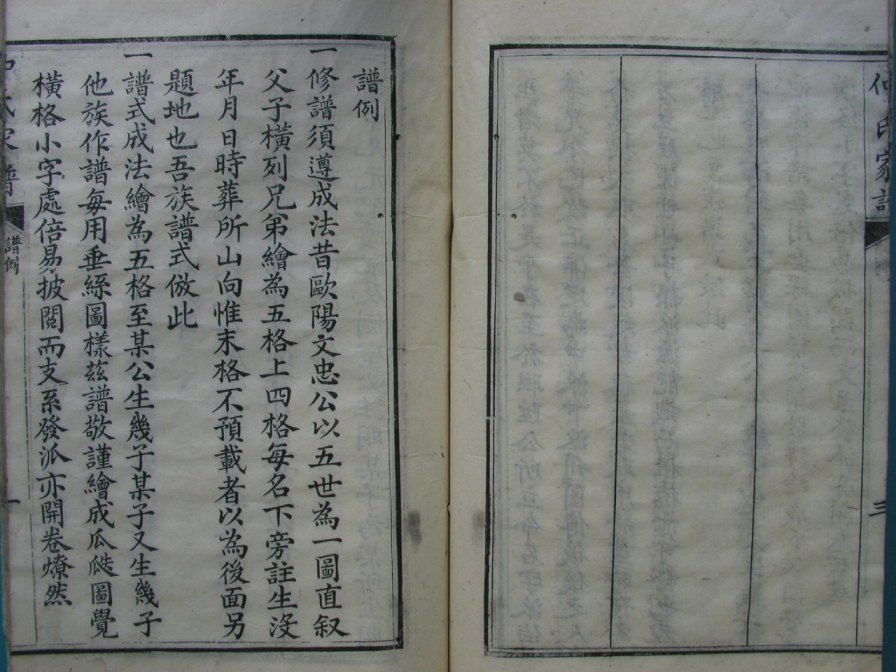 何氏家譜
三
譜例
一修譜須遵成法昔歐陽文忠公以五世為一圖直叙
父子橫列兄弟繪為五格上四格每名下旁註生沒
年月日時葬所山向惟末格不預載者以為後面另
題地也吾族譜式倣此
一譜式成法繪為五格至某公生幾子某子又生幾子
他族作譜每用垂絲圖樣茲譜敬謹繪成瓜瓞圖覺
橫格小字處倍易披閱而支系發派亦開卷燎然
氏家譜
譜例
一